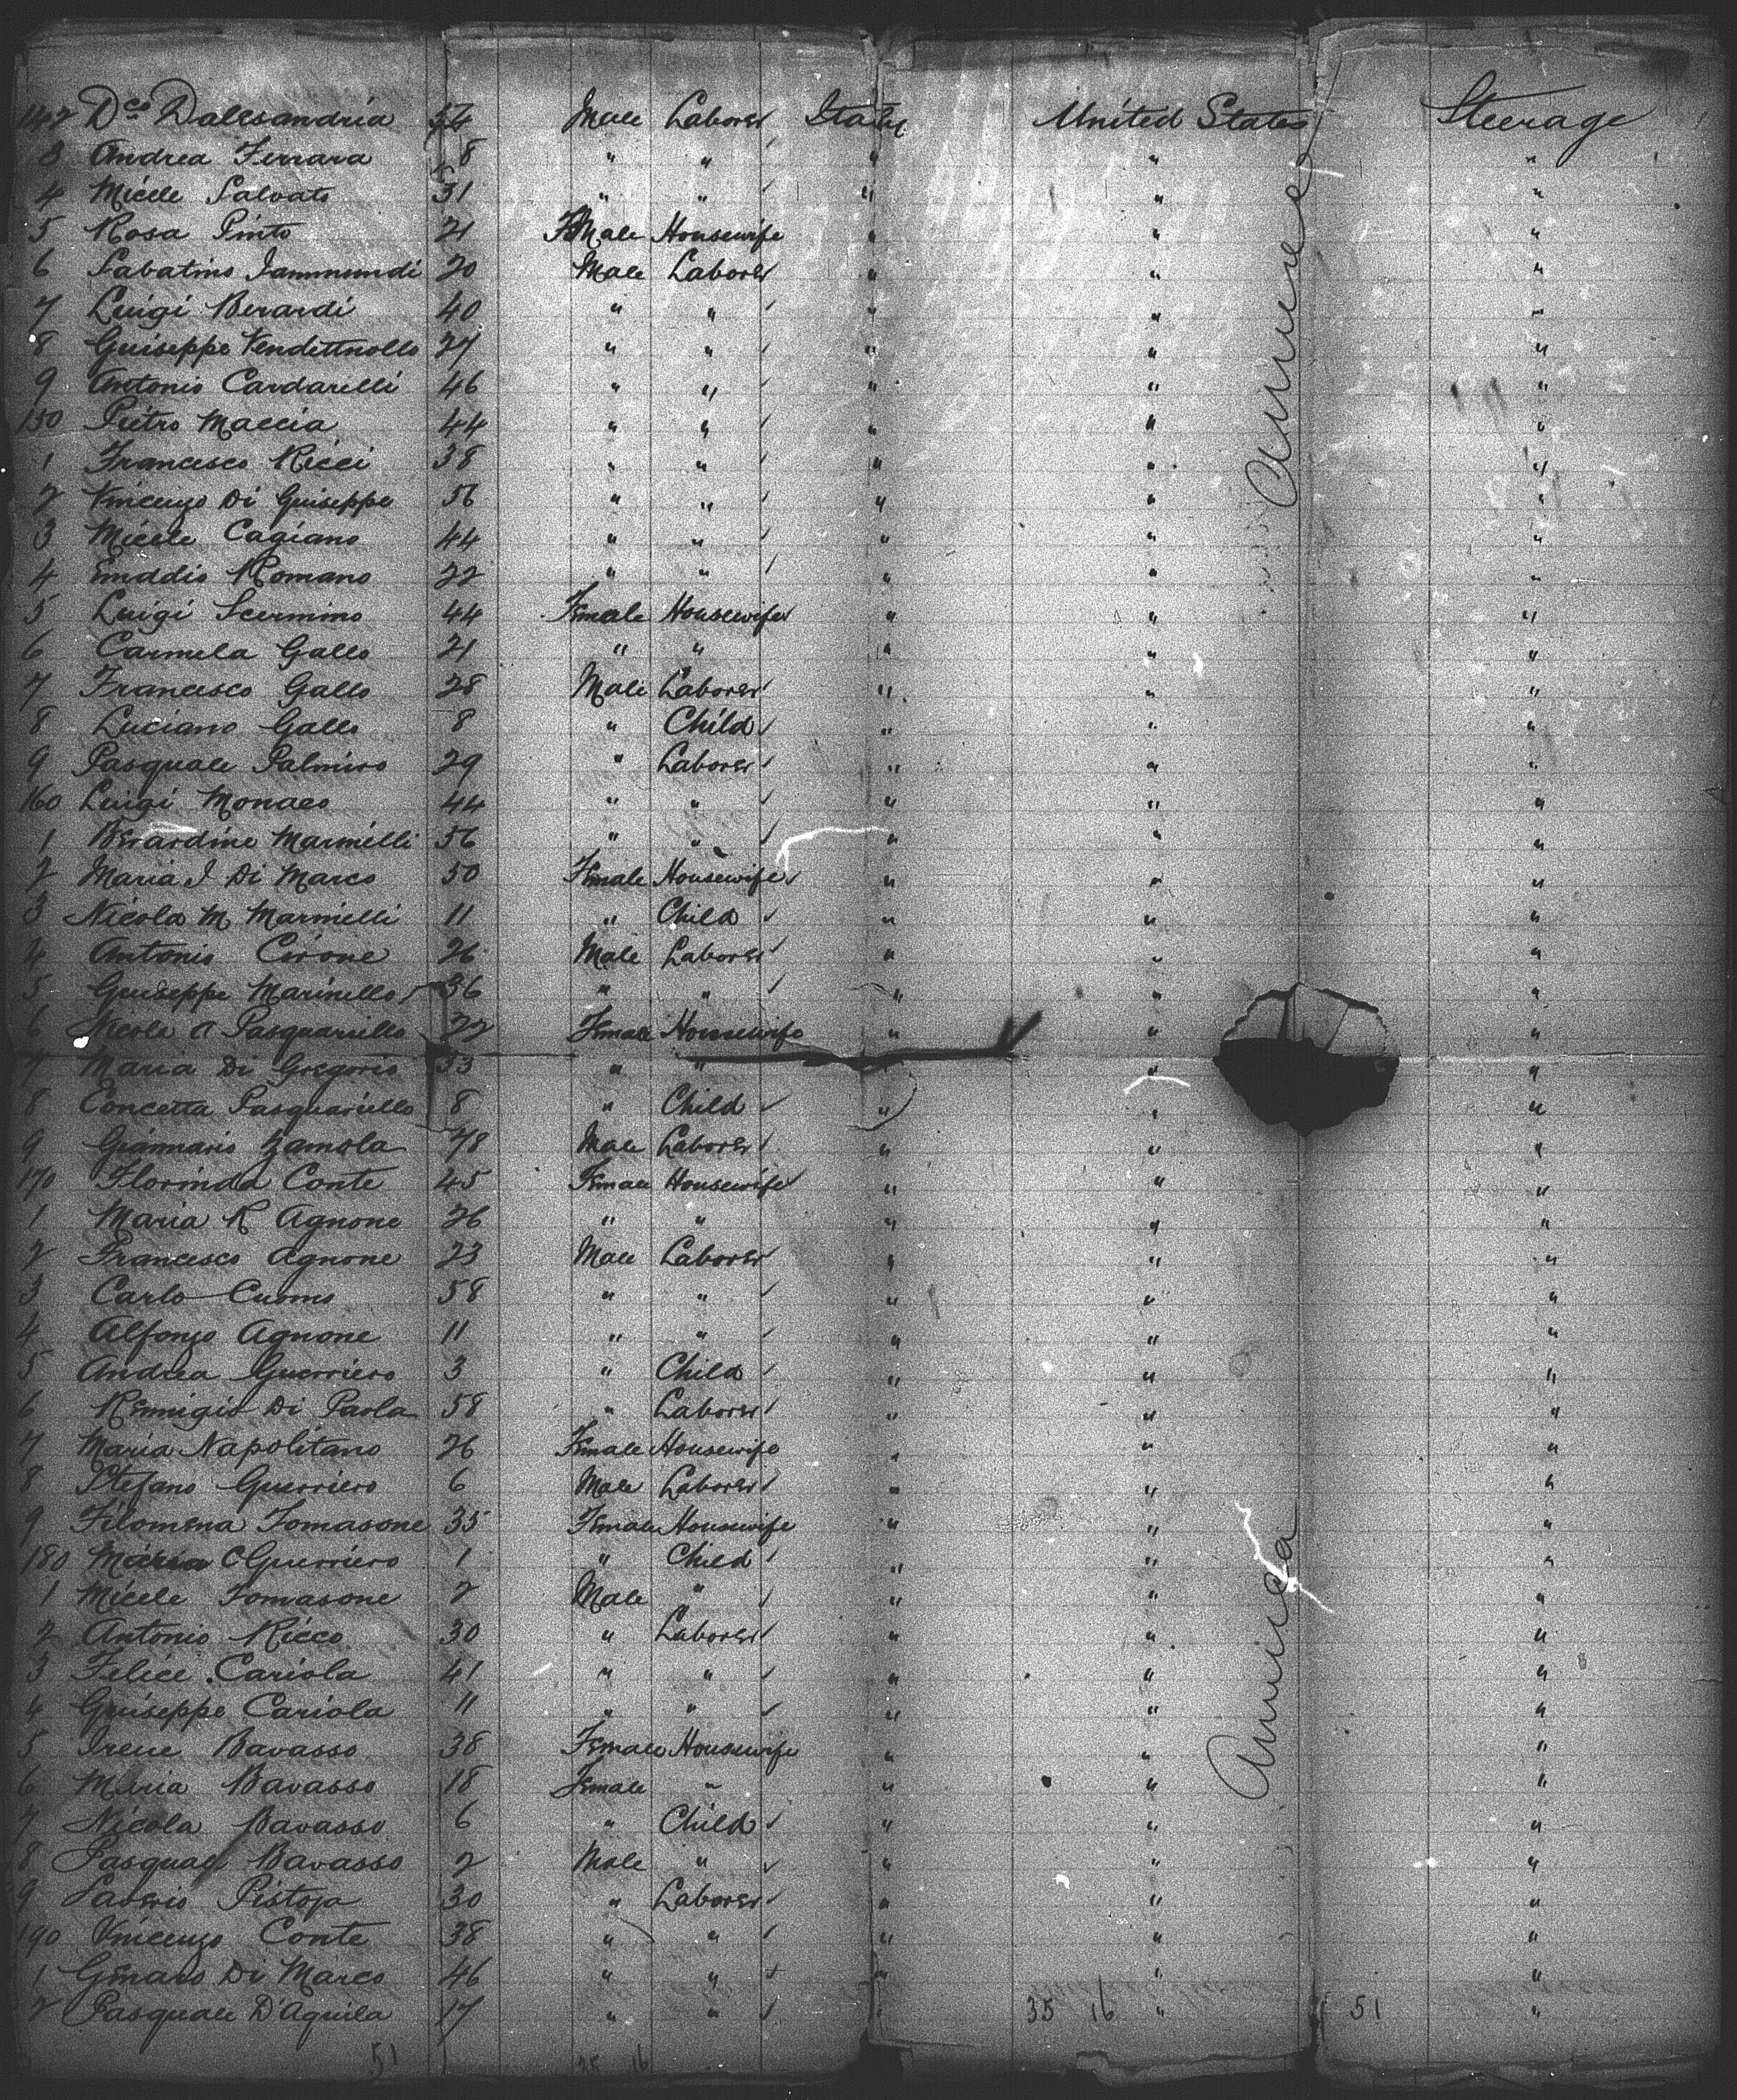 142 Dco Dalesandria 54 Male Laborer Italy United States Steerage
3 Andrea Ferrara 8 " " " " "
4 Micele Salvato 31 " " " " "
5 Rosa Pinto 21 FMale Housewife " " "
6 Sabatino 20 Male Laborer " " "
7 Luigi Berardi 40 " " " " "
8 Guiseppe 27 " " " " "
9 Antonio Cardarelli 46 " " " " "
150 Pietro Maccia 44 " " " " "
1 Francesco Ricci 38 " " " " "
2 Vincenzo Di Guiseppe 56 " " " " "
3 Micele Cagiano 44 " " " " "
4 Emddio Romano 22 " " " " "
5 Luigi 44 Female Housewife " " "
6 Carmela Gallo 21 " " " " "
7 Francesco Gallo 28 Male Laborer " " "
8 Luciano Gallo 8 " Child " " "
9 Pasquale Palmiro 29 " Laborer " " "
160 Luigi Monaco 44 " " " " "
1 Berardine Marinelli 56 " " " " "
2 Maria I Di Marco 50 Female Housewife " " "
3 Nicola M Marinelli 11 " Child " " "
4 Antonio Cirone 26 Male Laborer " " "
5 Guiseppe Marinello 36 " " " " "
6 Nicola A Pasquariello 22 Female Housewife " " "
7 Maria Di Gregorio 53 " " " " "
8 Concetta Pasquariello 8 " Child " " "
9 Giannario 48 Male Laborer " " "
170 Florinda Conte 45 Female Housewife " " "
1 Maria R Agnone 26 " " " " "
2 Francesco Agnone 23 Male Laborer " " "
3 Carlo Cuomo 58 " " " " "
4 Alfonzo Agnone 11 " " " " "
5 Andrea Guerriero 3 " Child " " "
6 Remigio Di Paola 58 " Laborer " " "
7 Maria Napolitano 26 Female Housewife " " "
8 Stefano Guerriero 6 Male Laborer " " "
9 Filomena Tomasone 35 Female Housewife " " "
180 Maria C Guerriero 1 " Child " " "
1 Micele Tomasone 2 Male " " " "
2 Antonio Ricco 30 " Laborer " " "
3 Felice Cariola 41 " " " " "
4 Guiseppe Cariola 11 " " " " "
5 Irene Bavasso 38 Female Housewife " " "
6 Maria Bavasso 18 Female " " " "
7 Nicola Bavasso 6 " Child " " "
8 Pasquale Bavasso 2 Male " " " "
9 Saverio Pistoja 30 " Laborer " " "
190 Vincenzo Conte 38 " " " " "
1 Genaro Di Marco 46 " " " " "
2 Pasquale D'Aquila 17 " " " 35 16 " 51 "
51 35 16